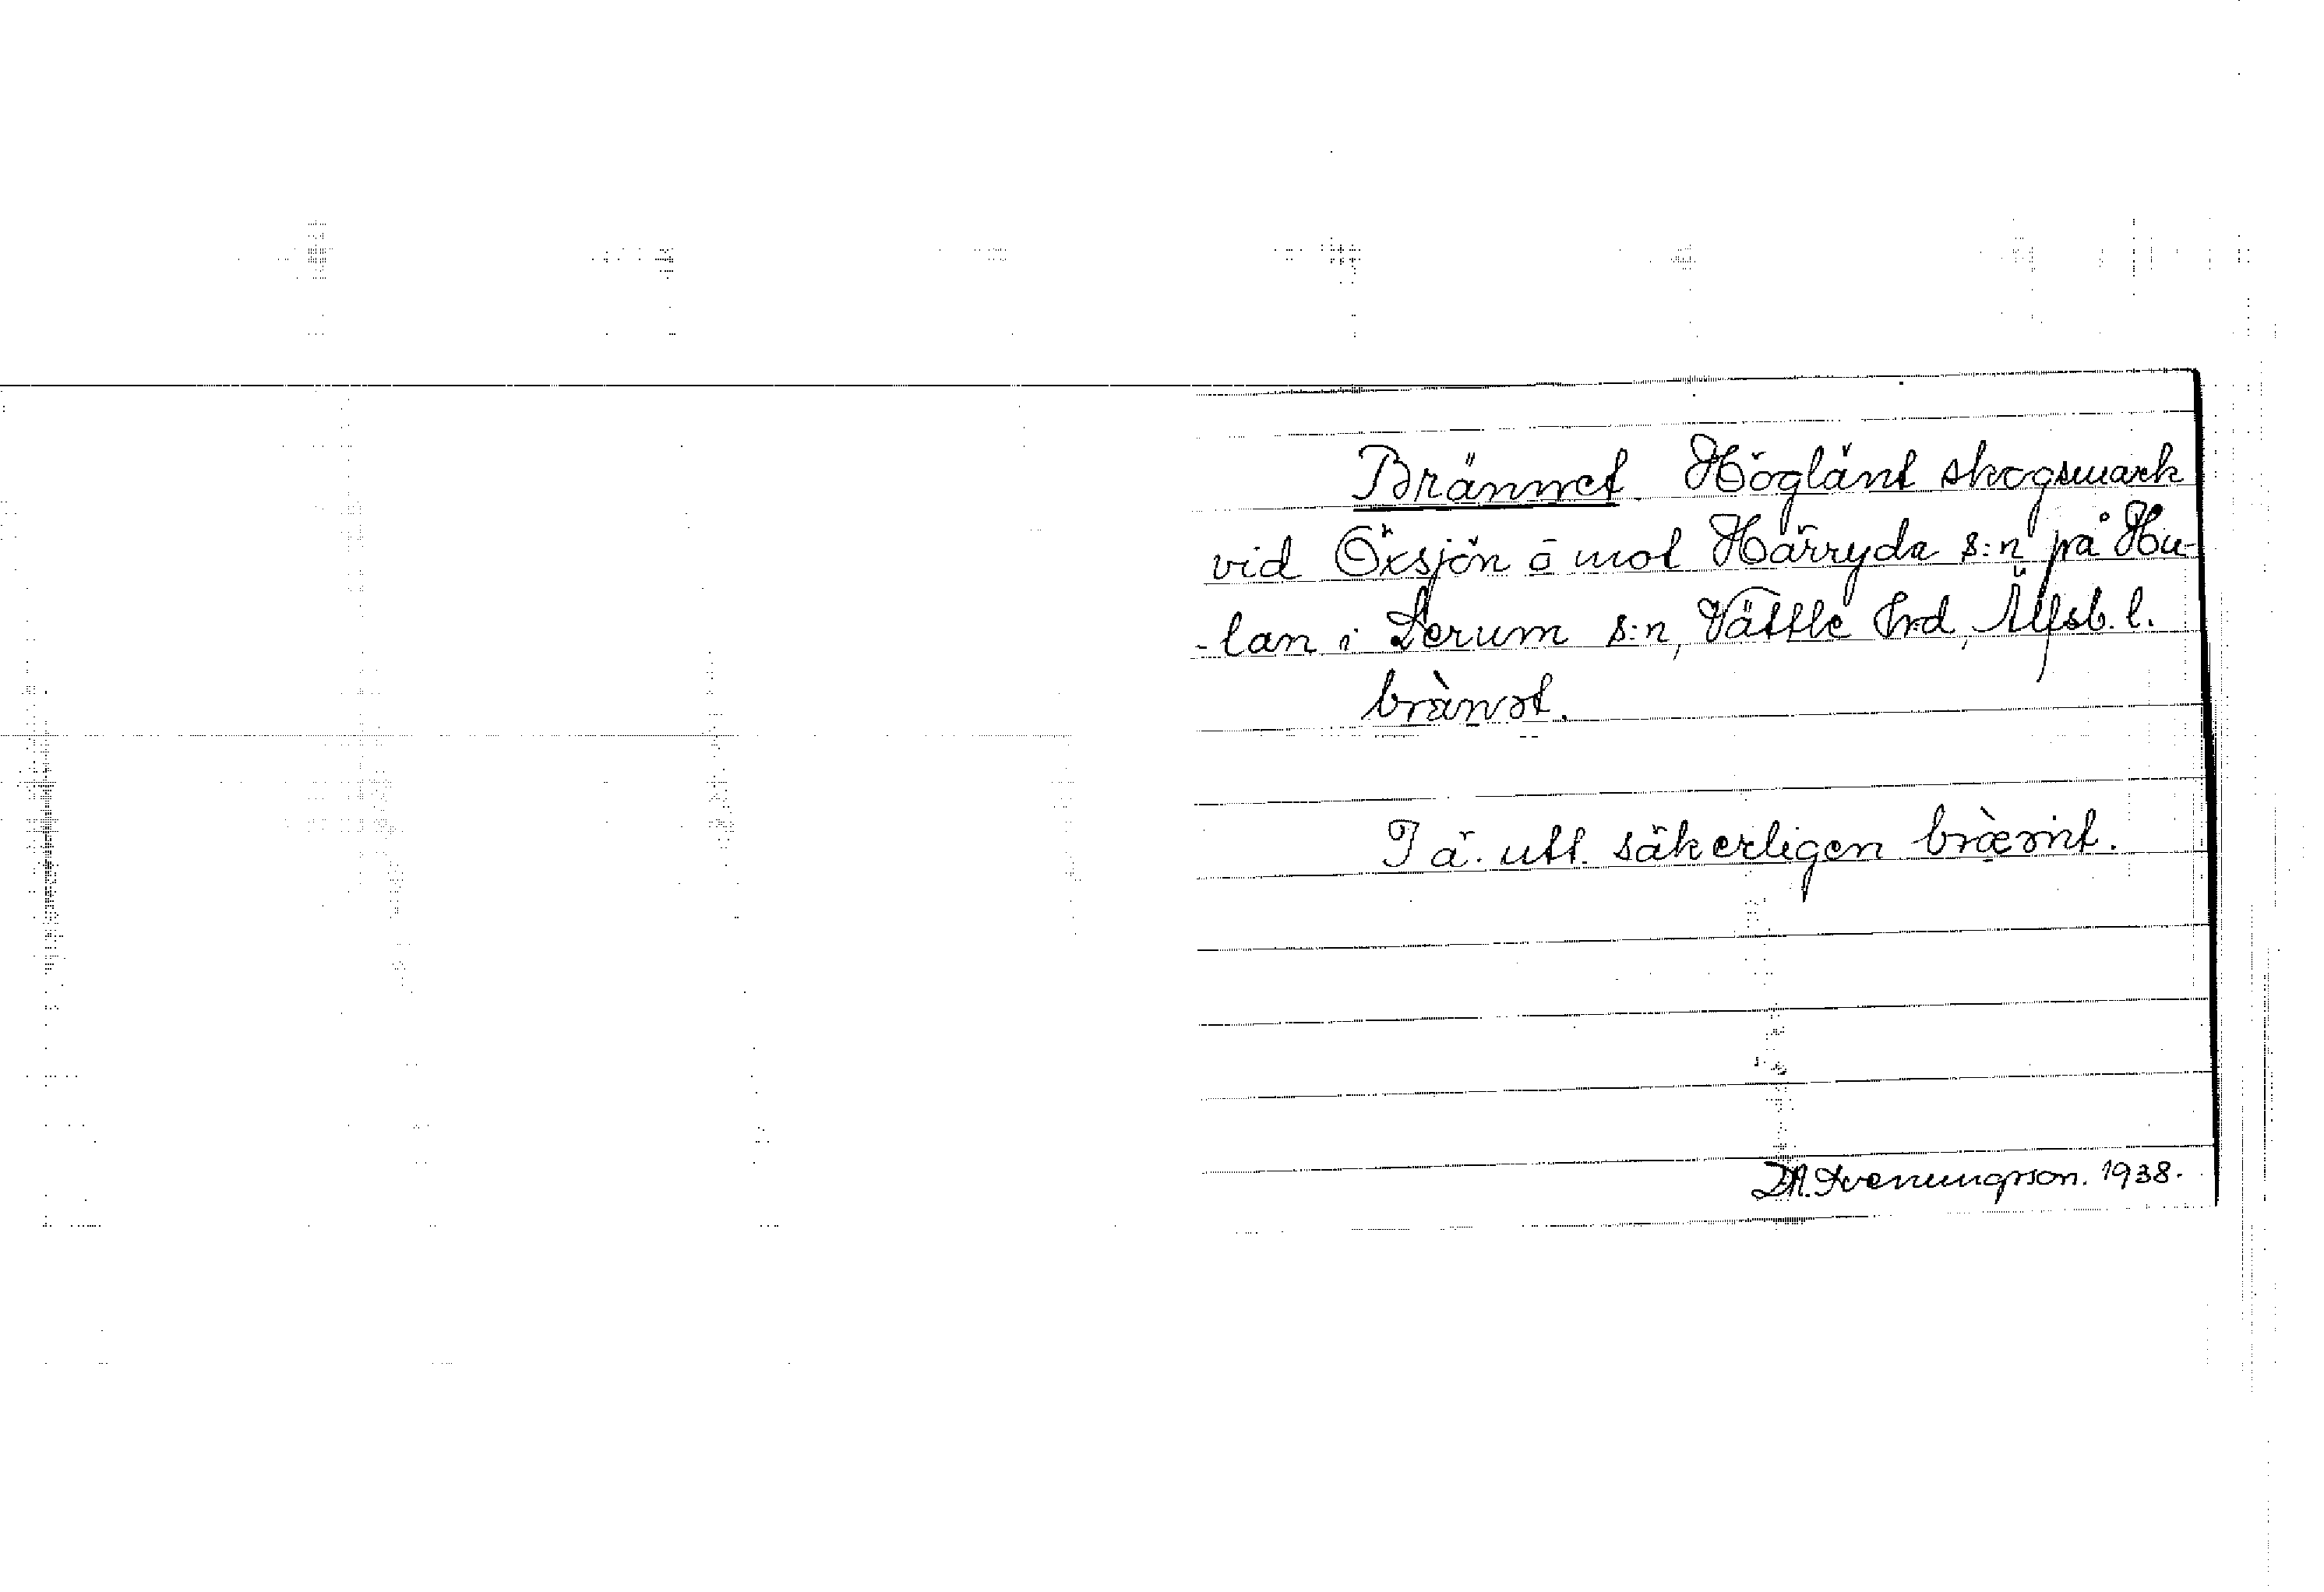 Brännet. Höglänt skogsmark
vid Öxsjön ö mot Härryda s:n på Hu-
-lan i Lerum s:n, Vättle hrd, Älfsb. l.
bränət.
I ä. utt. säkerligen
D.A. Svenungsson. 1938.